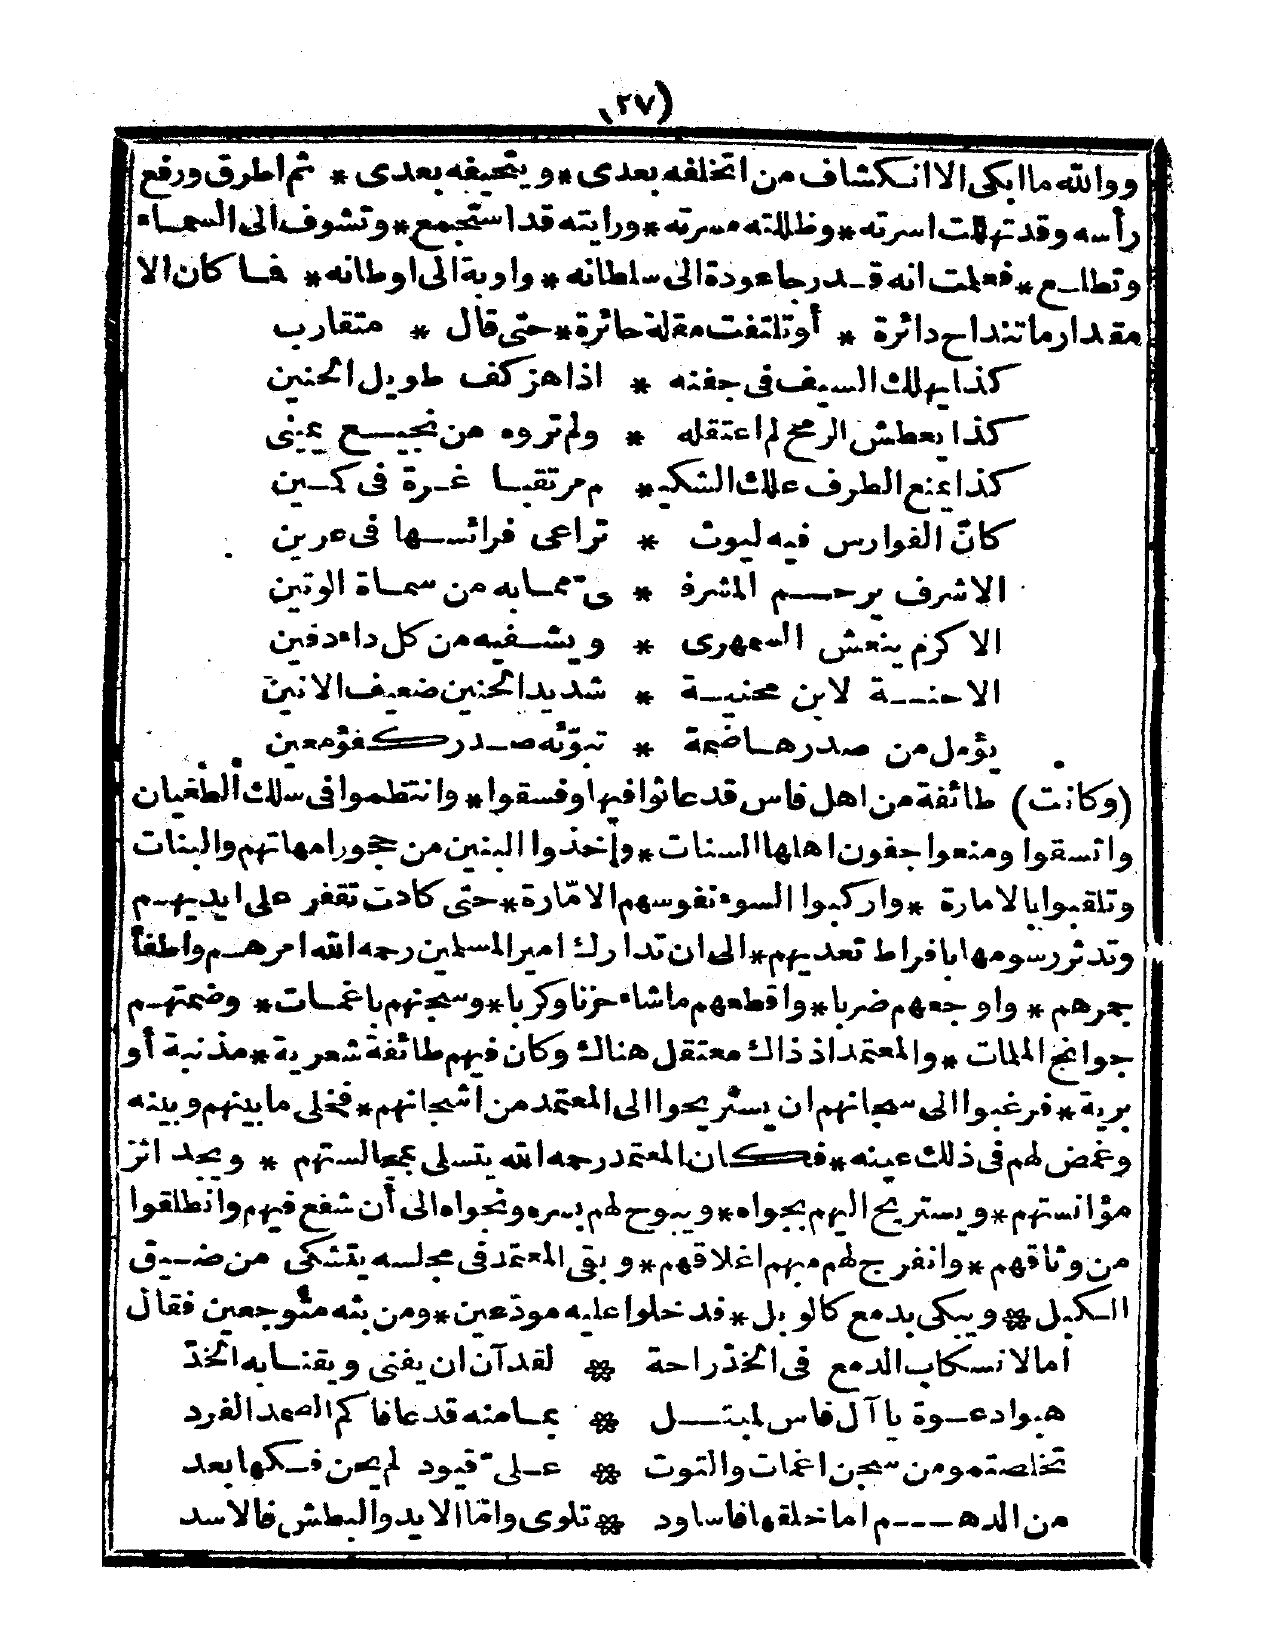 (٢٧)
ووالله ما ابكى الا انكشاف من اتخلفه بعدى * ويتحيفه بعدى * ثم اطرق ورفع
رأسه وقد تهللت اسرته * وظللته مسرته * ورايته قد استجمع * وتشوف الى السماء
وتطلع * فعلمت انه قد رجا عودة الى سلطانه * واوبة الى اوطانه * فما كان الا
مقدار ما تنداح دائرة * أو تلتفت مقلة حائرة * حتى قال * متقارب
كذا يهلك السيف فى جفنه * اذا هز كف طويل الحنين
كذا يعطش الرمح لم اعتقله * ولم تروه من نجيع يمينى
كذا يمنع الطرف علك الشكيم * م مرتقبا غرة فى كمين
كانّ الفوارس فيه ليوث * تراعى فرائسها فى عرين
الا شرف يرحم المشرف * ى مما به من سماة الوتين
الا كرم ينعش السمهرى * ويشفيه من كل داء دفين
الا حنة لابن محنية * شديد الحنين ضعيف الانين
يؤمل من صدرها ضمة * تبوّئه صدر كفؤ معين
(وكانت) طائفة من اهل فاس قد عاثوا فيها وفسقوا * وانتظموا فى سلك الطغيان
واتسقوا ومنعوا جفون اهلها السنات * وأخذوا البنين من حجور امهاتهم والبنات
وتلقبوا بالامارة * واركبوا السوء نفوسهم الامّارة * حتى كادت تقفر على ايديهم
وتدثر رسومها بافراط تعديهم * الى ان تدارك امير المسلمين رحمه الله امرهم واطفأ
جمرهم * واوجعهم ضربا * واقطعهم ماشاء حزنا وكربا * وسجنهم باغمات * وضمتهم
جوانح الملمات * والمعتمد اذ ذاك معتقل هناك وكان فيهم طائفة شعرية * مذنبة أو
برية * فرغبوا الى سجانهم ان يستريحوا الى المعتمد من اشجانهم * فخلى ما بينهم وبينه
وغمض لهم فى ذلك عينه * فكان المعتمد رحمه الله يتسلى بمجالستهم * ويجد اثر
مؤانستهم * ويستريح اليهم بجواه * ويبوح لهم بسره ونجواه الى أن شفع فيهم وانطلقوا
من وثاقهم * وانفرج لهم مبهم اغلاقهم * وبقى المعتمد فى مجلسه يتشكى من ضيق
الكبل * ويبكى بدمع كالوبل * فدخلوا عليه مودّعين * ومن بثه متوجعين فقال
اما لانسكاب الدمع فى الخذ راحة * لقد آن ان يفنى ويفنا به الخدّ
هبوا دعوة يا آل فاس لمبتل * بما منه قد عافاكم الصمد الفرد
تخلصتمو من سجن اغمات والتوت * على قيود لم يحن فكها بعد
من الدهم اما خلقها فاساود * تلوى وامّا الايد والبطش فالاسد